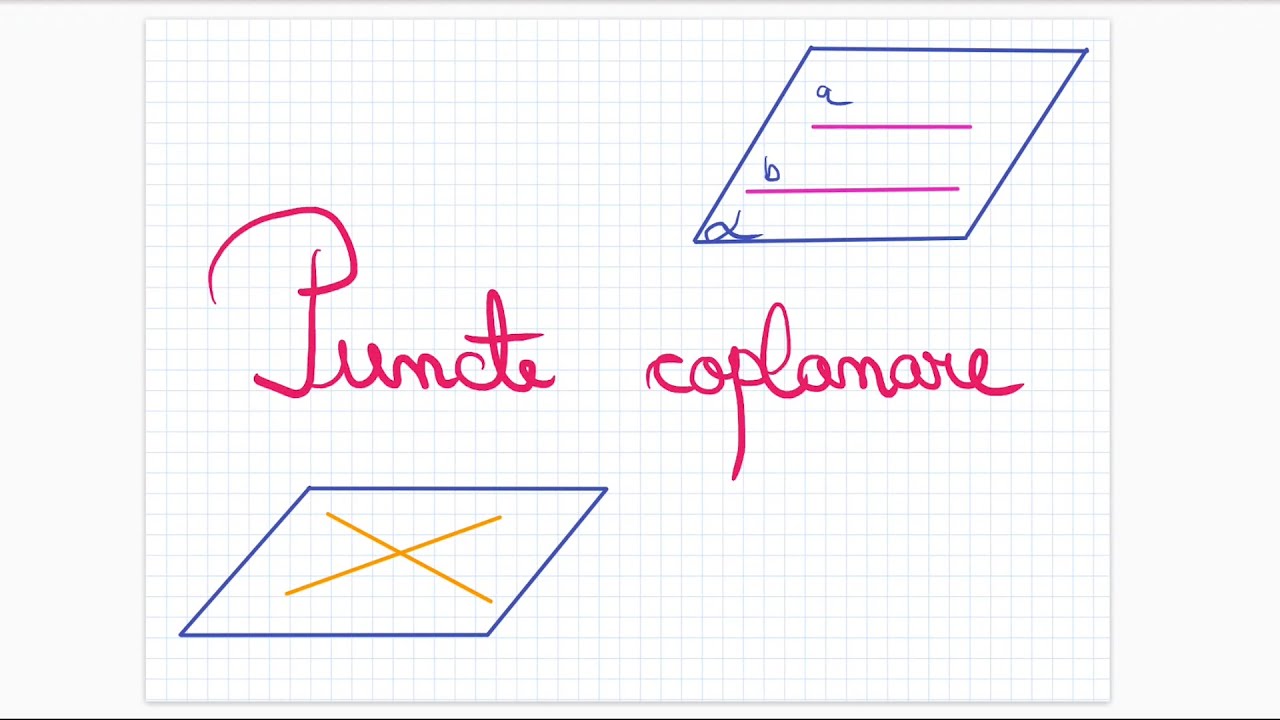 a
b
α
Puncte coplanare